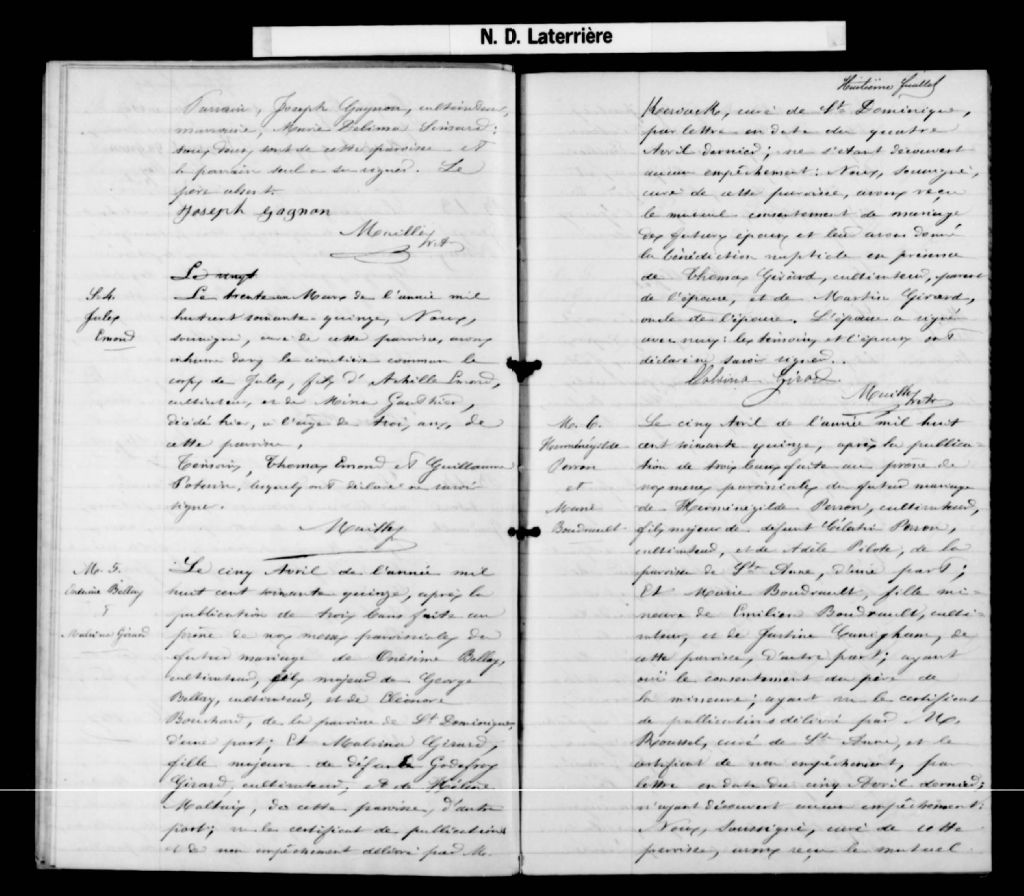 N. D. Laterrière
Parrain, Joseph Gagnon, cultivateur,
marraine, Marie Delima Simard;
tous deux sont de cette paroisse et
le parrain seul a su signer. Le
père absent.
Joseph Gagnon
Mailley
Ptr
Le vingt
S. 4.
Jules
Emond
Le trente un Mars de l'année mil
huit cent soixante quinze, Nous,
soussigné, curé de cette paroisse, avons
inhumé dans le cimetière commun le
corps de Jules, fils d'Achille Emond,
cultivateur, et de Mina Gauthier,
décédé hier, à l'age de trois ans, de
cette paroisse.
Témoins, Thomas Emond et Guillaume
Potvin, lesquels ont déclaré ne savoir
signer.
Mailley
M. 5.
Onésime Bellay
&
Malvina Girard
Le cinq Avril de l'année mil
huit cent soixante quinze, après la
publication de trois bans faite au
prône de nos messes paroissiales du
futur mariage de Onésime Bellay,
cultivateur, fils majeur de George
Bellay, cultivateur, et de Eléonore
Bouchard, de la paroisse de St. Dominique,
d'une part; Et Malvina Girard,
fille majeure de défunt Godefroy
Girard, cultivateur, et de Hélène
Maltais, de cette paroisse, d'autre
part; vu le certificat de publications
et de non empêchement délivré par M.
Huitième feuillet
Kerouack, curé de St. Dominique,
par lettre en date du quatre
Avril dernier; ne s'étant découvert
aucun empêchement: Nous, soussigné,
curé de cette paroisse, avons reçu
le mutuel consentement de mariage
des futurs époux et leur avons donné
la bénédiction nuptiale en présence
de Thomas Girard, cultivateur, parent
de l'épouse, et de Martin Girard,
oncle de l'épouse. L'épouse a signé
avec nous: les témoins et l'époux ont
déclaré ne savoir signer.
Malvina Girard
Mailley
Ptr
M. 6.
Herménégilde
Perron
et
Marie
Boudreault
Le cinq Avril de l'année mil huit
cent soixante quinze, après la publica-
tion de trois bans faite au prône de
nos messes paroissiales du futur mariage
de Herménégilde Perron, cultivateur,
fils majeur de défunt Célestin Perron,
cultivateur, et de Adèle Pilote, de la
paroisse de Ste Anne, d'une part;
Et Marie Boudreault, fille mi-
neure de Emilien Boudreault, culti-
vateur, et de Justine Cunigham, de
cette paroisse, d'autre part; ayant
ouï le consentement du père de
la mineure; ayant vu le certificat
de publications délivré par M.
Roussel, curé de Ste Anne, et le
certificat de non empêchement, par
lettre en date du cinq Avril dernier;
n'ayant découvert aucun empêchement:
Nous, soussigné, curé de cette
paroisse, avons reçu le mutuel